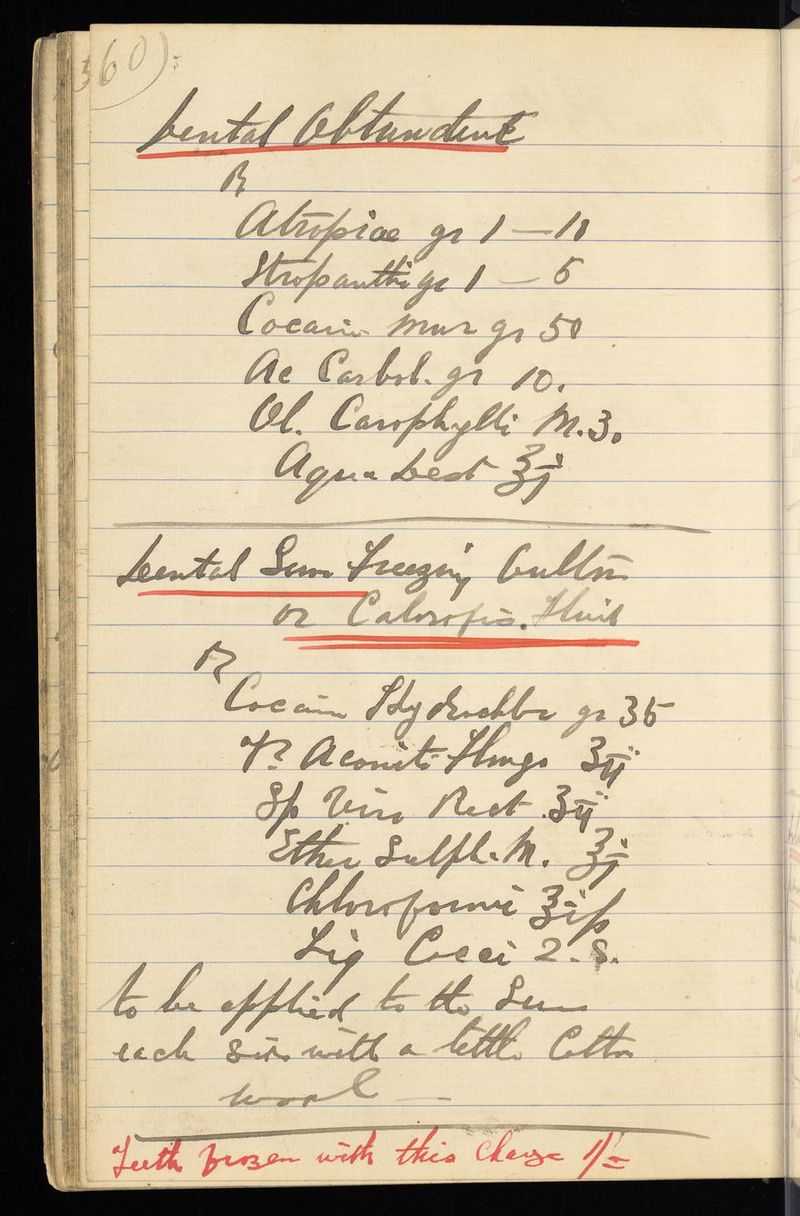 360):
Dental Obtundent
℞
Atropiae gr 1 — 10
Stropanthi gr 1 — 5
Cocain mur gr 50
Ac Carbol. gr 10.
Ol. Carophylli M. 3.
Aqua Dest ʒj
Dental Gum Freezing
or Fluid
℞
Cocain Hydrochlor gr 35
Tr Aconite Flmgs ʒij
Sp Vini Rect. ʒij
Ether Sulph. M. ʒj
Chloroformi ʒiß
Liq Cocci 2. S.
to be applied to the Gum
each side with a little Cotton
wool —
Teeth frozen with this Charge 1/=